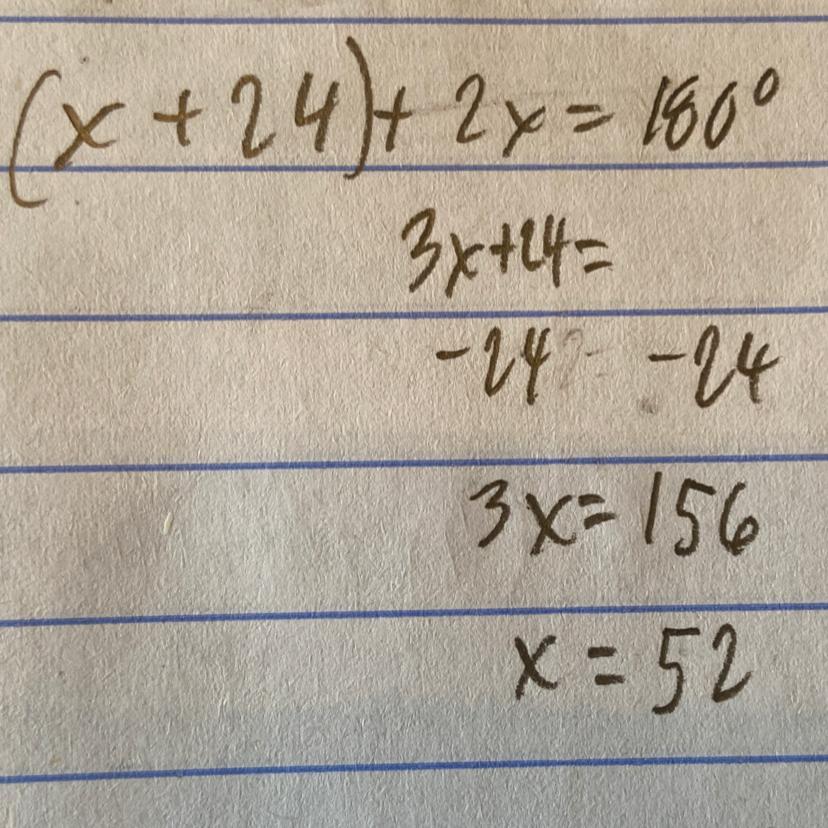 (x + 24) + 2x = 180°
3x+24=
-24 -24
3x = 156
x = 52